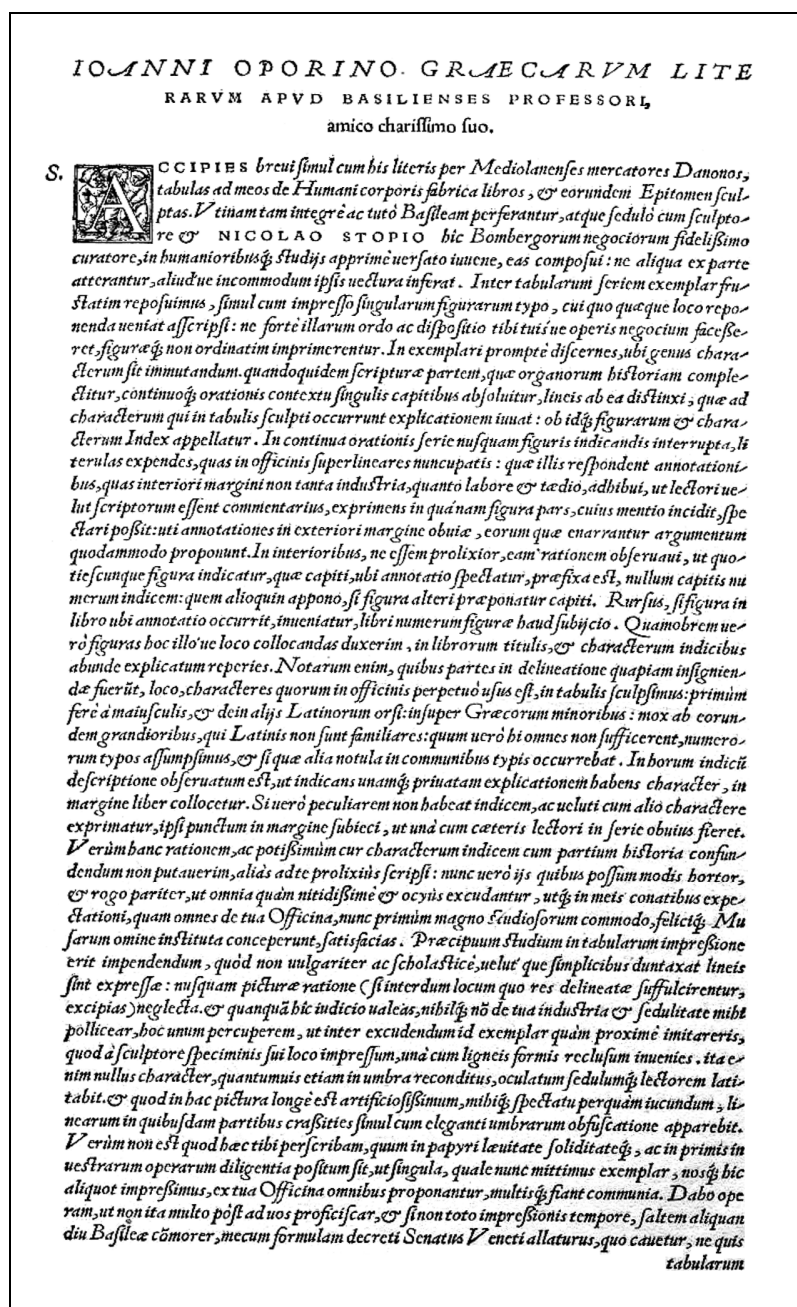 IOANNI OPORINO. GRAECARVM LITE
RARVM APVD BASILIENSES PROFESSORI,
amico chariſſimo ſuo.
S. ACCIPIES breui ſimul cum his literis per Mediolanenſes mercatores Danonos,
tabulas ad meos de Humani corporis fabrica libros, & eorundem Epitomen ſcul-
ptas. Vtinam tam integrè ac tutò Baſileam perferantur, atque ſedulò cum ſculpto-
re & NICOLAO STOPIO hic Bombergorum negociorum fideliſſimo
curatore, in humanioribusq́; ſtudijs apprimè uerſato iuuene, eas compoſui: ne aliqua ex parte
atterantur, aliud'ue incommodum ipſis uectura inferat. Inter tabularum ſeriem exemplar fru-
ſtatim repoſuimus, ſimul cum impreſſo ſingularum figurarum typo, cui quo quæque loco repo-
nenda ueniat aſſcripſi: ne fortè illarum ordo ac diſpoſitio tibi tuis'ue operis negocium faceſſe-
ret, figuræq́; non ordinatim imprimerentur. In exemplari promptè diſcernes, ubi genus chara-
cterum ſit immutandum. quandoquidem ſcripturæ partem, quæ organorum hiſtoriam comple-
ctitur, continuoq́; orationis contextu ſingulis capitibus abſoluitur, lineis ab ea diſtinxi, quæ ad
characterum qui in tabulis ſculpti occurrunt explicationem iuuat: ob idq́; figurarum & chara-
cterum Index appellatur. In continua orationis ſerie nuſquam figuris indicandis interrupta, li
terulas expendes, quas in officinis ſuperlineares nuncupatis: quæ illis reſpondent annotationi-
bus, quas interiori margini non tanta induſtria, quanto labore & tædio, adhibui, ut lectori ue-
lut ſcriptorum eſſent commentarius, exprimens in quá'nam figura pars, cuius mentio incidit, ſpe
ctari poſſit: uti annotationes in exteriori margine obuiæ, eorum quæ enarrantur argumentum
quodammodo proponunt. In interioribus, ne eſſem prolixior, eam rationem obſeruaui, ut quo-
tieſcunque figura indicatur, quæ capiti, ubi annotatio ſpectatur, præfixa eſt, nullum capitis nu
merum indicem: quem alioquin appono, ſi figura alteri præponatur capiti. Rurſus, ſi figura in
libro ubi annotatio occurrit, inueniatur, libri numerum figuræ haud ſubijcio. Quamobrem ue-
rò figuras hoc illo'ue loco collocandas duxerim, in librorum titulis, & characterum indicibus
abunde explicatum reperies. Notarum enim, quibus partes in delineatione quapiam inſignien-
dæ fuerũt, loco, characteres quorum in officinis perpetuò uſus eſt, in tabulis ſculpſimus: primùm
ferè à maiuſculis, & dein alijs Latinorum orſi: inſuper Græcorum minoribus: mox ab eorun-
dem grandioribus, qui Latinis non ſunt familiares: quum uerò hi omnes non ſufficerent, numero-
rum typos aſſumpſimus, & ſi quæ alia notula in communibus typis occurrebat. In horum indicũ
deſcriptione obſeruatum eſt, ut indicans unamq́; priuatam explicationem habens character, in
margine liber collocetur. Si uerò peculiarem non habeat indicem, ac ueluti cum alio charactere
exprimatur, ipſi punctum in margine ſubieci, ut unà cum cæteris lectori in ſerie obuius fieret.
Verùm hanc rationem, ac potiſſimùm cur characterum indicem cum partium hiſtoria confun-
dendum non putauerim, aliàs ad te prolixiùs ſcripſi: nunc uerò ijs quibus poſſum modis hortor,
& rogo pariter, ut omnia quàm nitidiſſimè & ocyùs excudantur, utq́; in meis conatibus expe-
ctationi, quam omnes de tua Officina, nunc primùm magno Studioſorum commodo, feliciq́; Mu
ſarum omine inſtituta conceperunt, ſatisfacias. Præcipuum ſtudium in tabularum impreſſione
erit impendendum, quòd non uulgariter ac ſcholaſticè, uelut que ſimplicibus duntaxat lineis
ſint expreſſæ: nuſquam picturæ ratione (ſi interdum locum quo res delineatæ ſuffulcirentur,
excipias) neglecta. & quanquã hic iudicio ualeas, nihilq́; nõ de tua induſtria & ſedulitate mihi
pollicear, hoc unum percuperem, ut inter excudendum id exemplar quàm proximè imitareris,
quod à ſculptore ſpeciminis ſui loco impreſſum, unà cum ligneis formis recluſum inuenies. ita e-
nim nullus character, quantumuis etiam in umbra reconditus, oculatum ſedulumq́; lectorem lati
tabit. & quod in hac pictura longè eſt artificioſiſſimum, mihiq́; ſpectatu perquàm iucundum, li-
nearum in quibuſdam partibus craſſities ſimul cum eleganti umbrarum obfuſcatione apparebit.
Verùm non eſt quod hæc tibi perſcribam, quum in papyri læuitate ſoliditateq́;, ac in primis in
ueſtrarum operarum diligentia poſitum ſit, ut ſingula, quale nunc mittimus exemplar, nosq́; hic
aliquot impreſſimus, ex tua Officina omnibus proponantur, multisq́; fiant communia. Dabo ope
ram, ut non ita multo pòſt ad uos proficiſcar, & ſi non toto impreſſionis tempore, ſaltem aliquan
diu Baſileæ cõmorer, mecum formulam decreti Senatus Veneti allaturus, quo cauetur, ne quis
tabularum